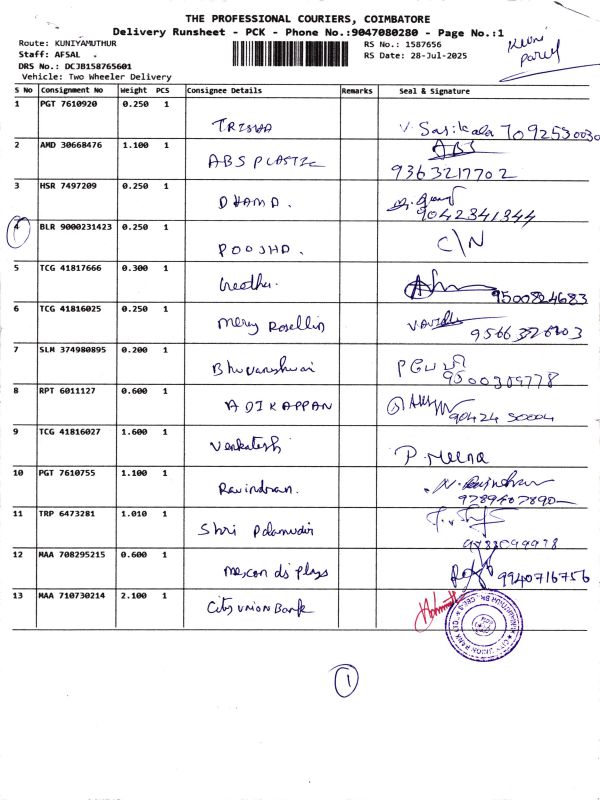 THE PROFESSIONAL COURIERS, COIMBATORE
Delivery Runsheet - PCK - Phone No.:9047080280 - Page No.:1
Route: KUNIYAMUTHUR
Staff: AFSAL
DRS No.: DCJB158765601
Vehicle: Two Wheeler Delivery
RS No.: 1587656
RS Date: 28-Jul-2025
S No Consignment No Weight PCS Consignee Details Remarks Seal & Signature
1 PGT 7610920 0.250 1
TRISHA V. Sasikala 7092530030
2 AMD 30668476 1.100 1
ABS PLASTIC ABS
9363217702
3 HSR 7497209 0.250 1
DHAMA. 9042341344
4 BLR 9000231423 0.250 1
POOJHA. C\N
5 TCG 41817666 0.300 1
Geetha. 9500824683
6 TCG 41816025 0.250 1
Mercy Rosellin
7 SLM 374980895 0.200 1
Bhuvaneshwari
9500309778
8 RPT 6011127 0.600 1
ADIKAPPAN 90424 50004
9 TCG 41816027 1.600 1
Venkatesh P. Meena
10 PGT 7610755 1.100 1
Ravindran. N. Ravindran
9789407890
11 TRP 6473281 1.010 1
Shri
12 MAA 708295215 0.600 1
9940716756
13 MAA 710730214 2.100 1
City union Bank
1